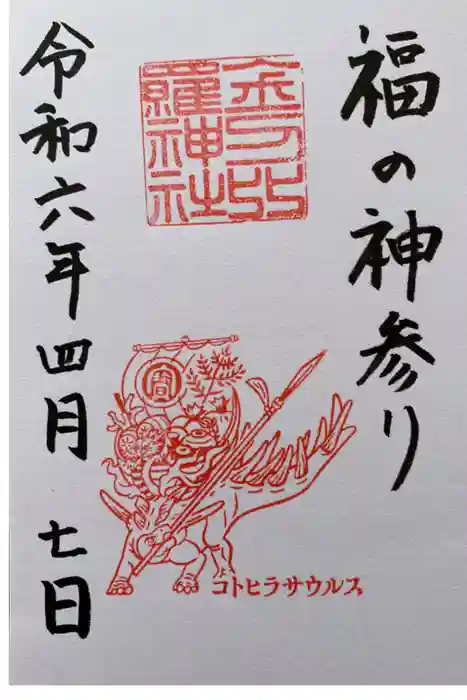 福の神参り
金刀比
羅神社
令和六年四月七日
コトヒラサウルス